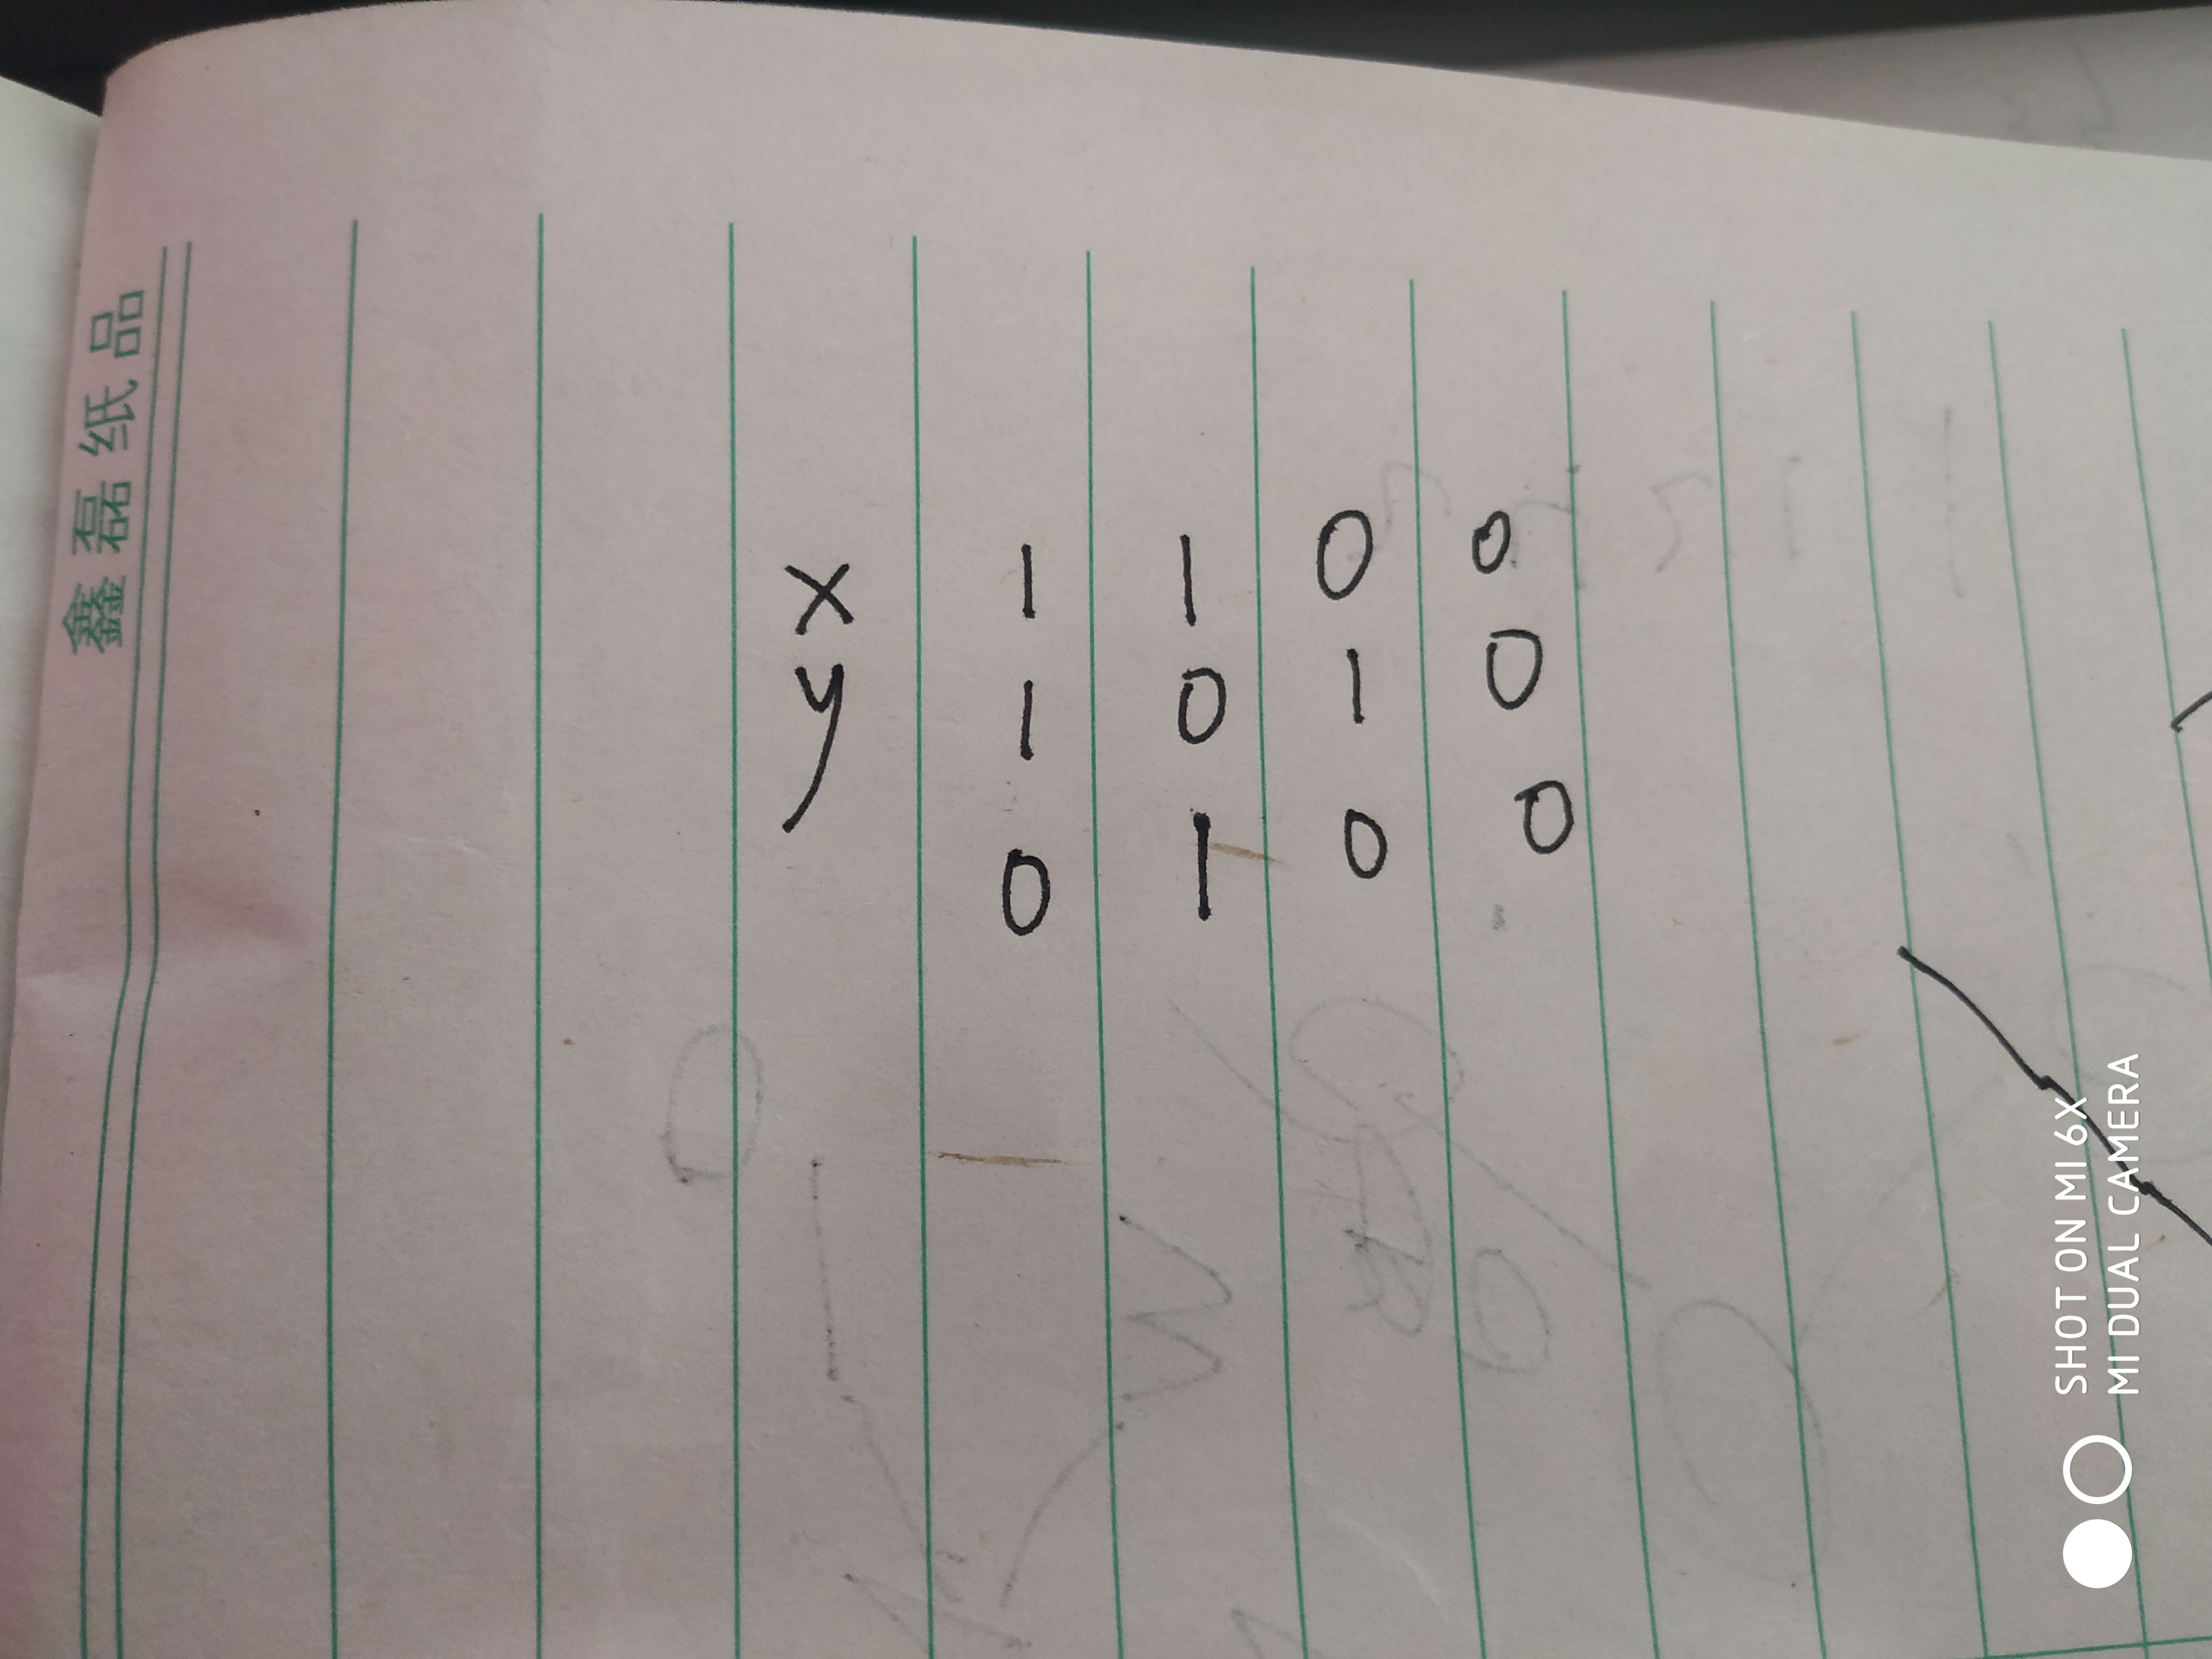 鑫磊纸品
x 1 1 0 0
y 1 0 1 0
0 1 0 0
SHOT ON MI 6X
MI DUAL CAMERA